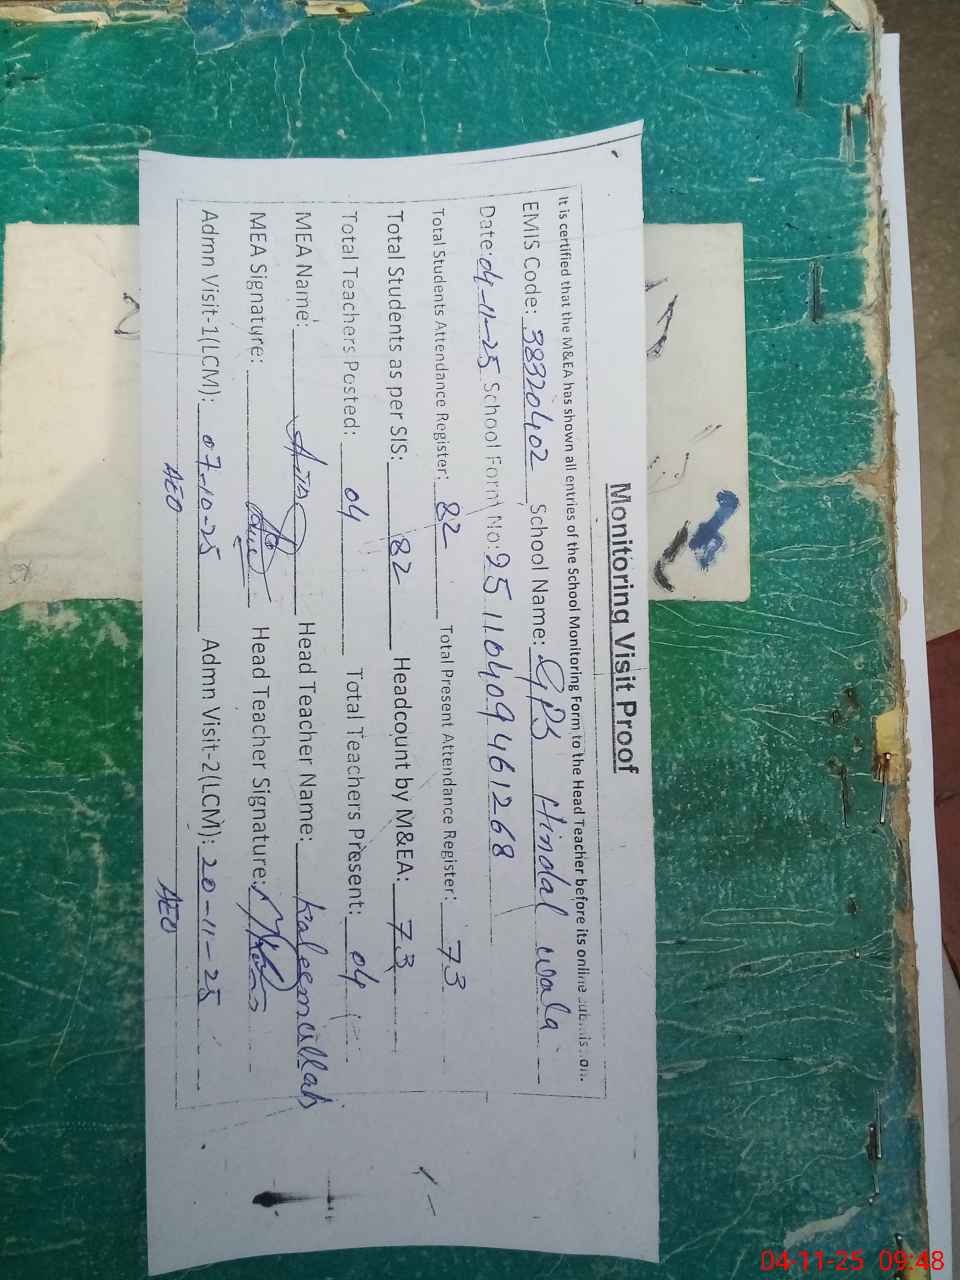 Monitoring Visit Proof
It is certified that the M&EA has shown all entries of the School Monitoring Form to the Head Teacher before its online submission.
EMIS Code: 38320402 School Name: GPS Hindal wala
Date: 04-11-25 School Form No: 95110409461268
Total Students Attendance Register: 82 Total Present Attendance Register: 73
Total Students as per SIS: 82 Headcount by M&EA: 73
Total Teachers Posted: 04 Total Teachers Present: 04
MEA Name: Head Teacher Name: Kaleemullah
MEA Signature: Head Teacher Signature:
Admn Visit-1(LCM): 07-10-25 Admn Visit-2(LCM): 20-11-25
AEO AEO
04-11-25 09:48